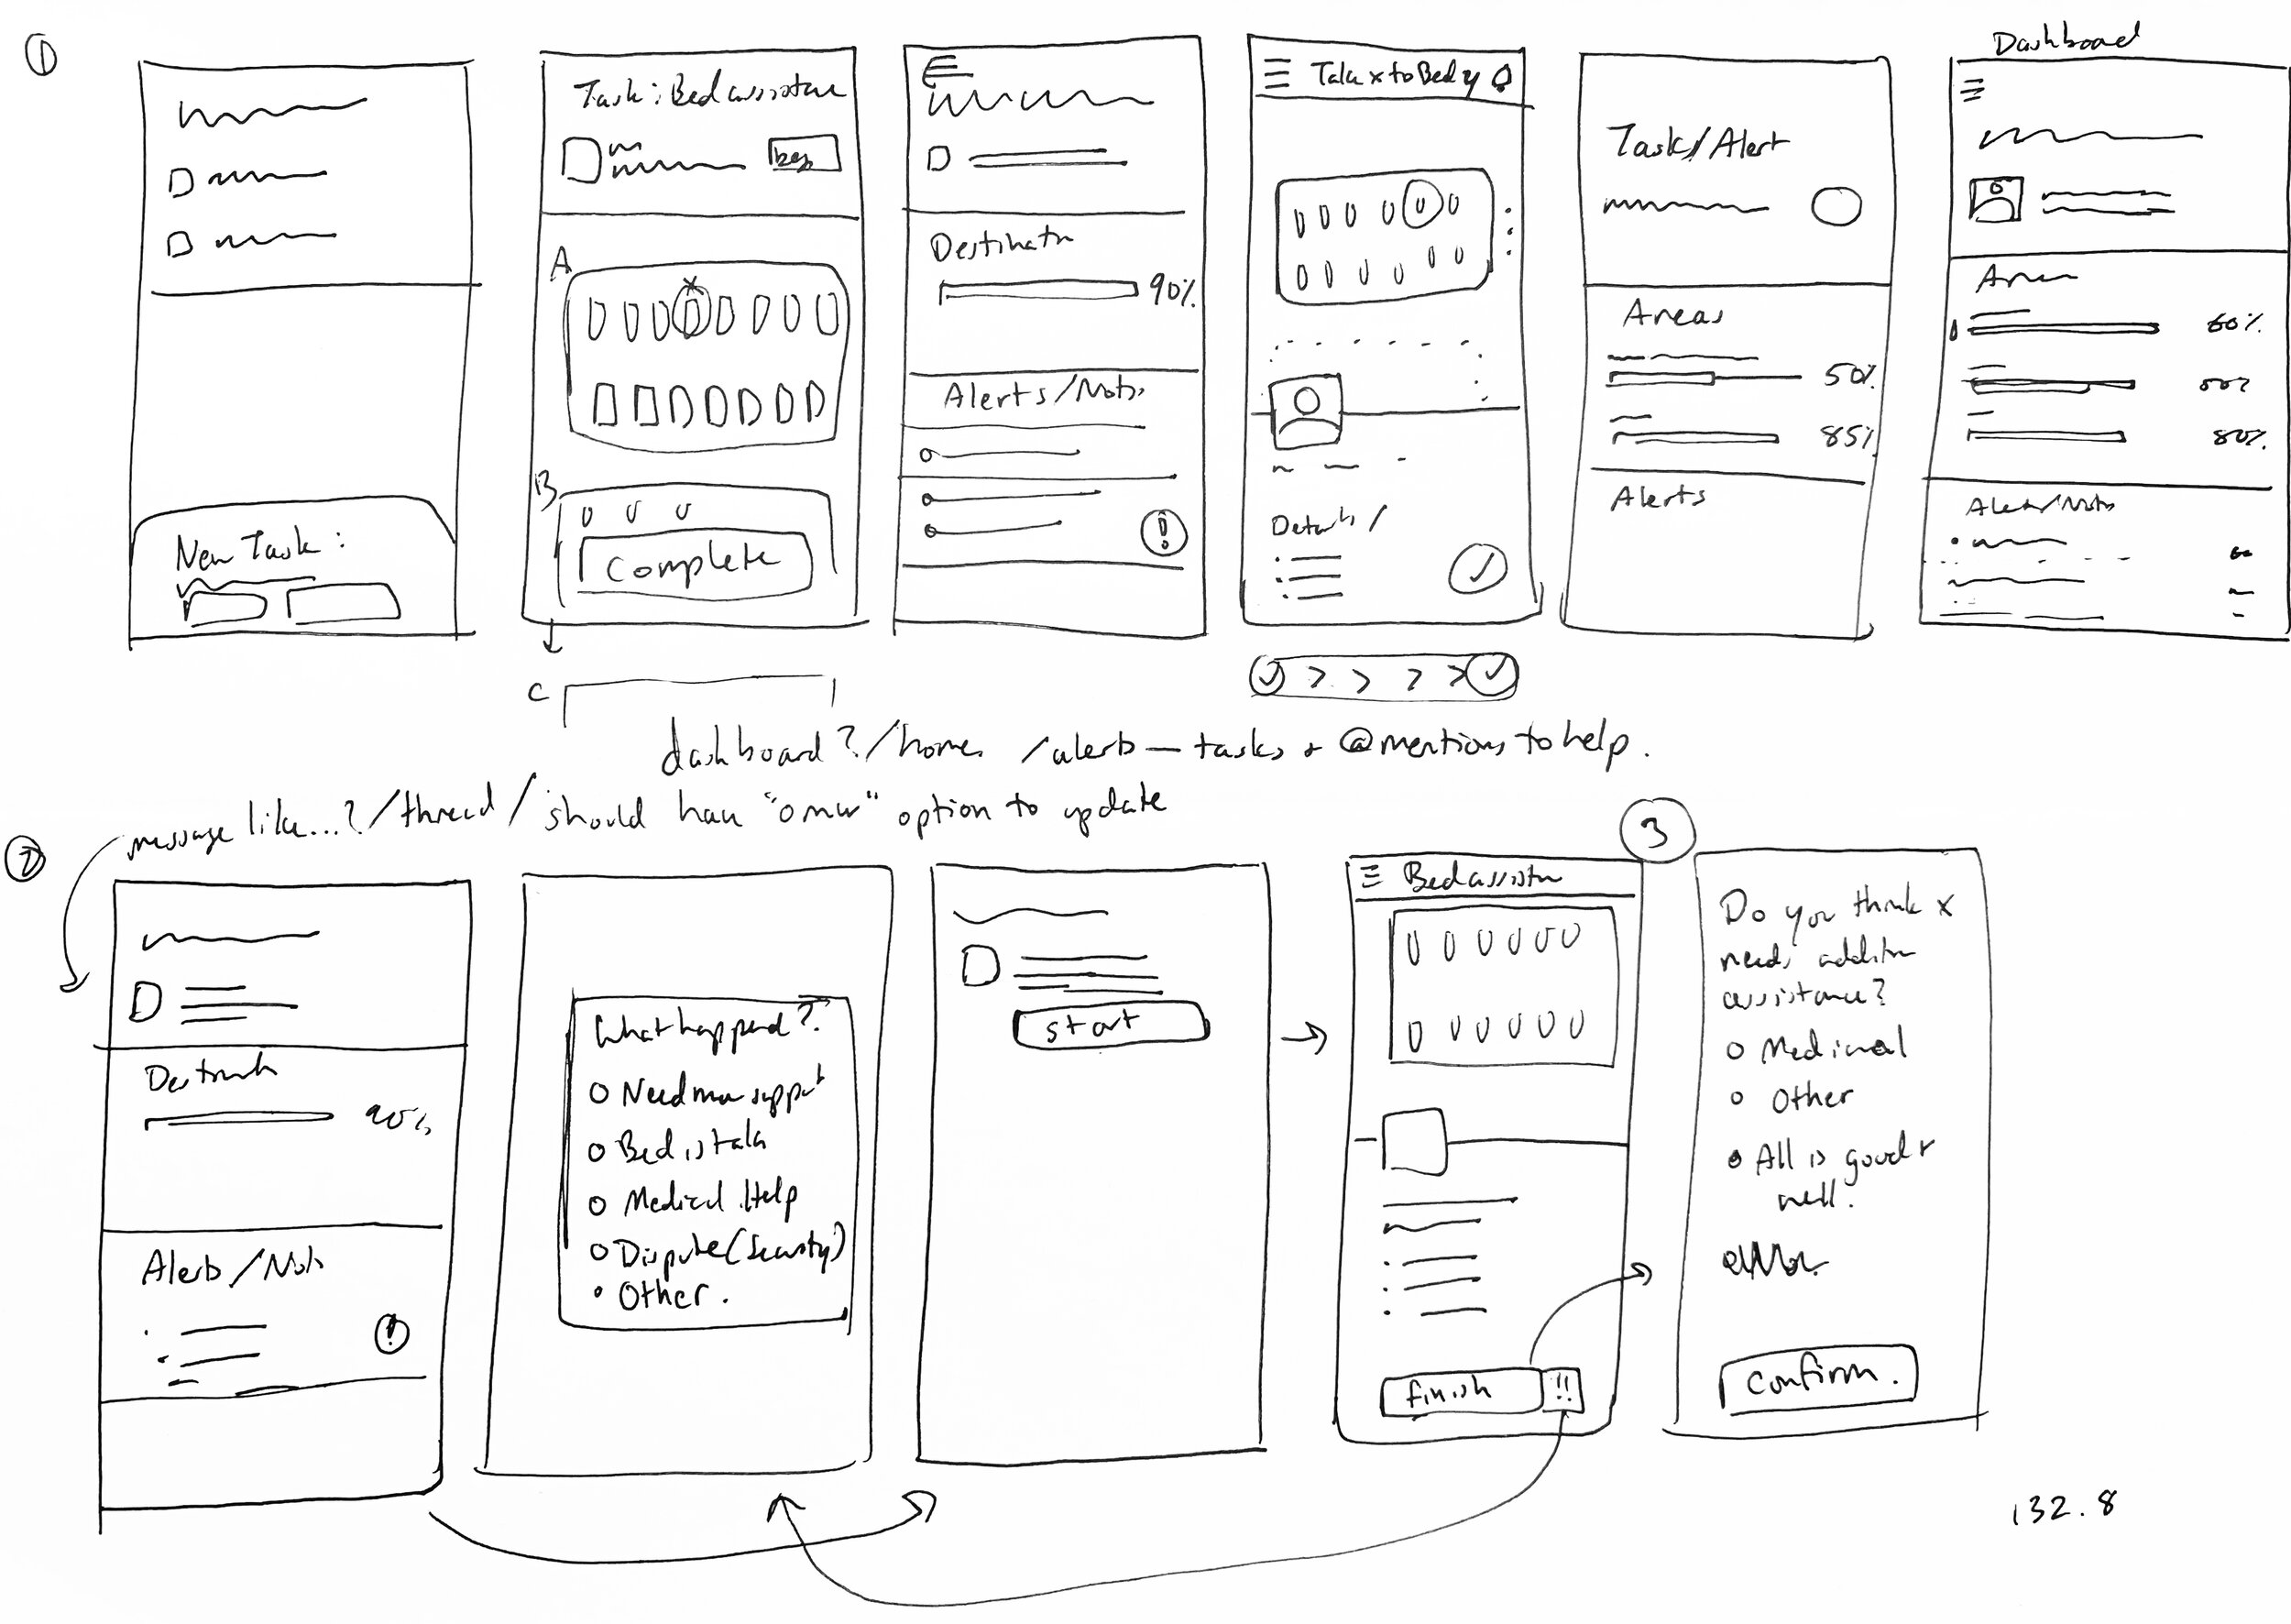 1
New Task:
Task: Bed assistan
A
B
Complete
C
Destinatn
90%
Alerts/Nots
!
Take x to Bed y
Details/
Task/Alert
Areas
50%
85%
Alerts
Dashboard
Area
60%
80%
Alerts/Nots
dashboard?/home. /alerts — tasks + @mentions to help.
message like...?/thread/should have "omw" option to update
2
90%
Alerts/Nots
!
What happened?
Need more support
Bed is taken
Medical Help
Dispute (Security)
Other.
start
Bed assistn
finish
!!
3
Do you think x
needs addition
assistance?
Medical
Other
All is good +
well.
Confirm.
132.8